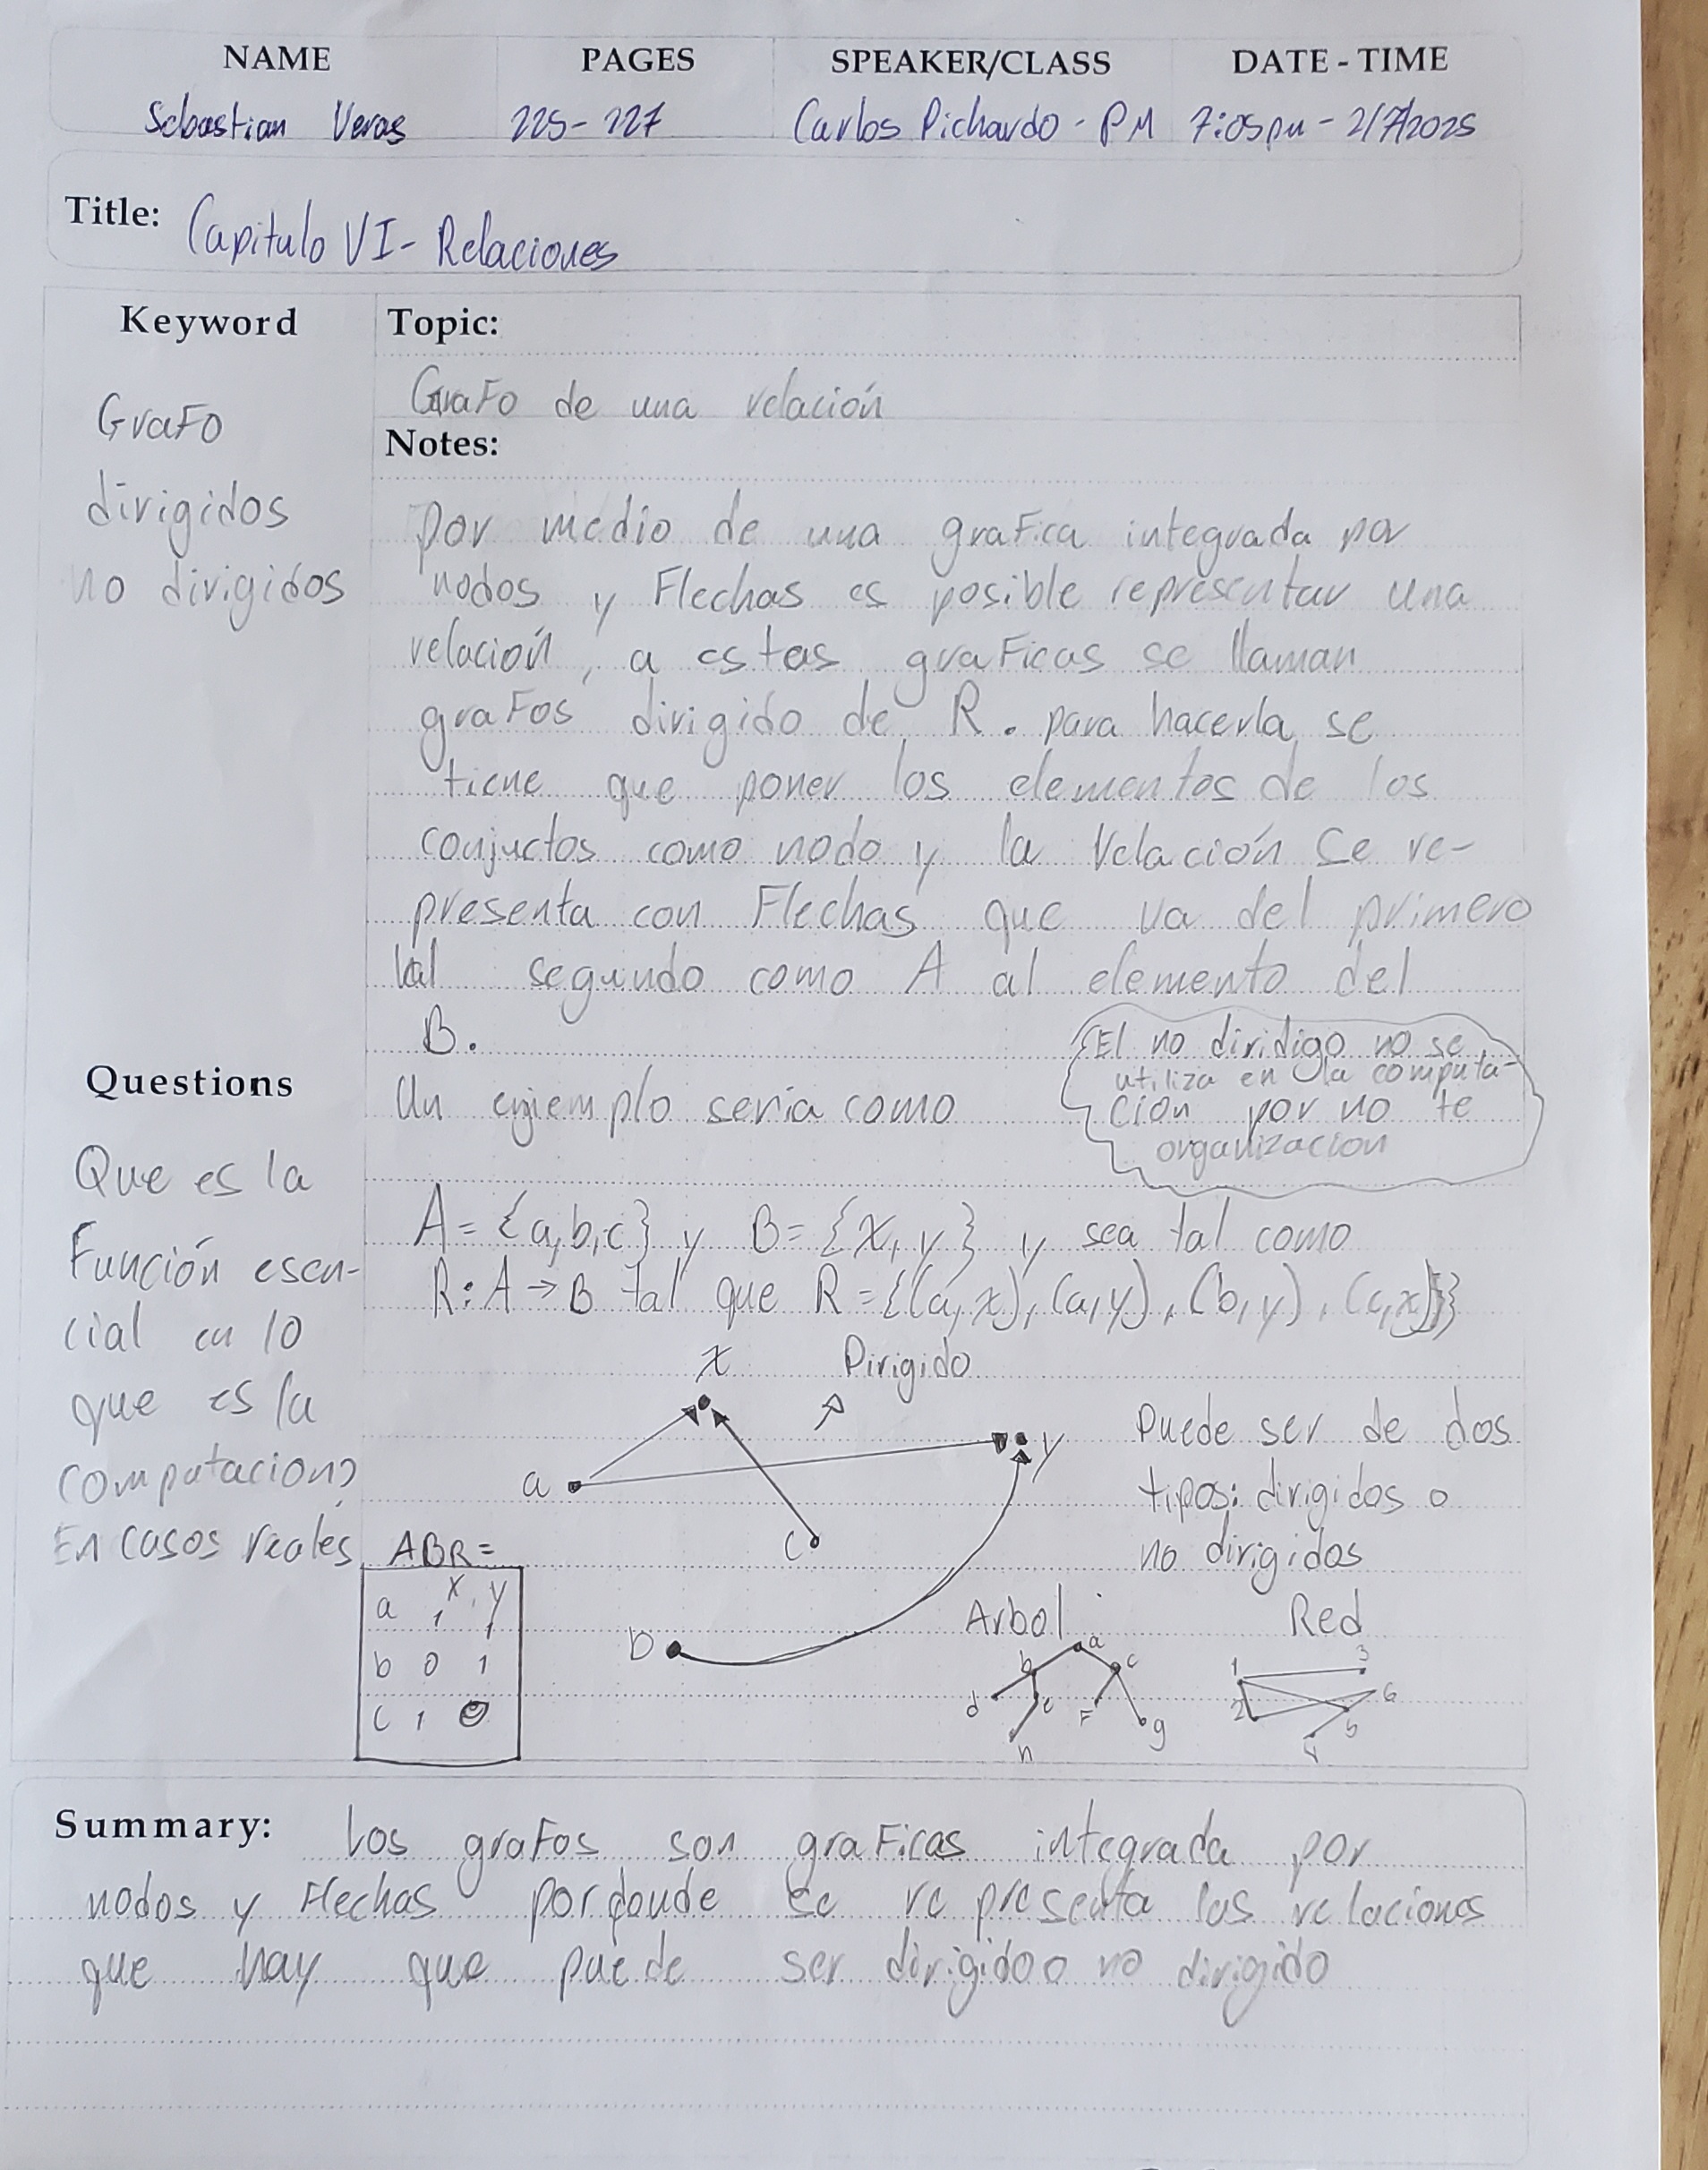 NAME PAGES SPEAKER/CLASS DATE - TIME
Sebastian Veras 225-227 Carlos Pichardo - PM 7:05pm - 2/7/2025
Title: Capitulo VI - Relaciones
Keyword
Grafo
dirigidos
no dirigidos
Topic:
Grafo de una relación
Notes:
por medio de una grafica integrada por
nodos y Flechas es posible representar una
relación, a estas graficas se llaman
grafos dirigido de R. para hacerla se
tiene que poner los elementos de los
conjuctos como nodo y la relación se re-
presenta con Flechas que va del primero
al segundo como A al elemento del
B.
El no diridigo no se
utiliza en la computa-
ción por no te
organizacion
Un ejemplo sería como
A = {a,b,c} y B = {x, y} y sea tal como
R: A → B tal que R = {(a,x), (a,y), (b,y), (c,x)}
Questions
Que es la
Función esen-
cial en lo
que es la
computacion?
En casos reales
x Dirigido
a y
c
b
Puede ser de dos
tipos: dirigidos o
no dirigidos
ABR =
x, y
a 1 1
b 0 1
c 1
Arbol
a
b c
d e F g
h
Red
1 3
2 6
5
4
Summary: Los grafos son graficas integrada por
nodos y Flechas por donde se representa las relaciones
que hay que puede ser dirigido o no dirigido